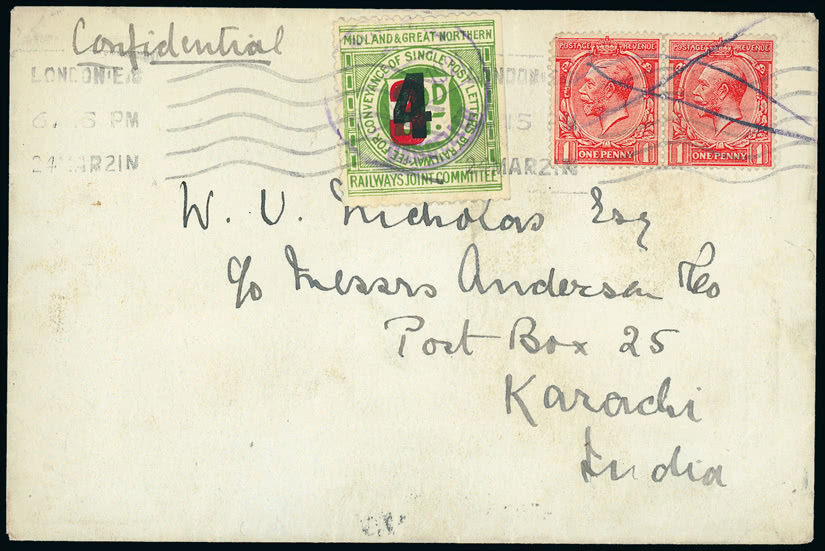 Confidential
LONDON.E.C
6.15 PM
24 MAR 21 N
MIDLAND & GREAT NORTHERN
FOR CONVEYANCE OF SINGLE POST LETTERS BY RAILWAY FEE
4
D
RAILWAYS JOINT COMMITTEE
15
24 MAR 21 N
POSTAGE REVENUE
1 ONE PENNY 1
POSTAGE REVENUE
1 ONE PENNY 1
W. U. Nicholas Esq
c/o Messrs Anderson & Co
Post Box 25
Karachi
India